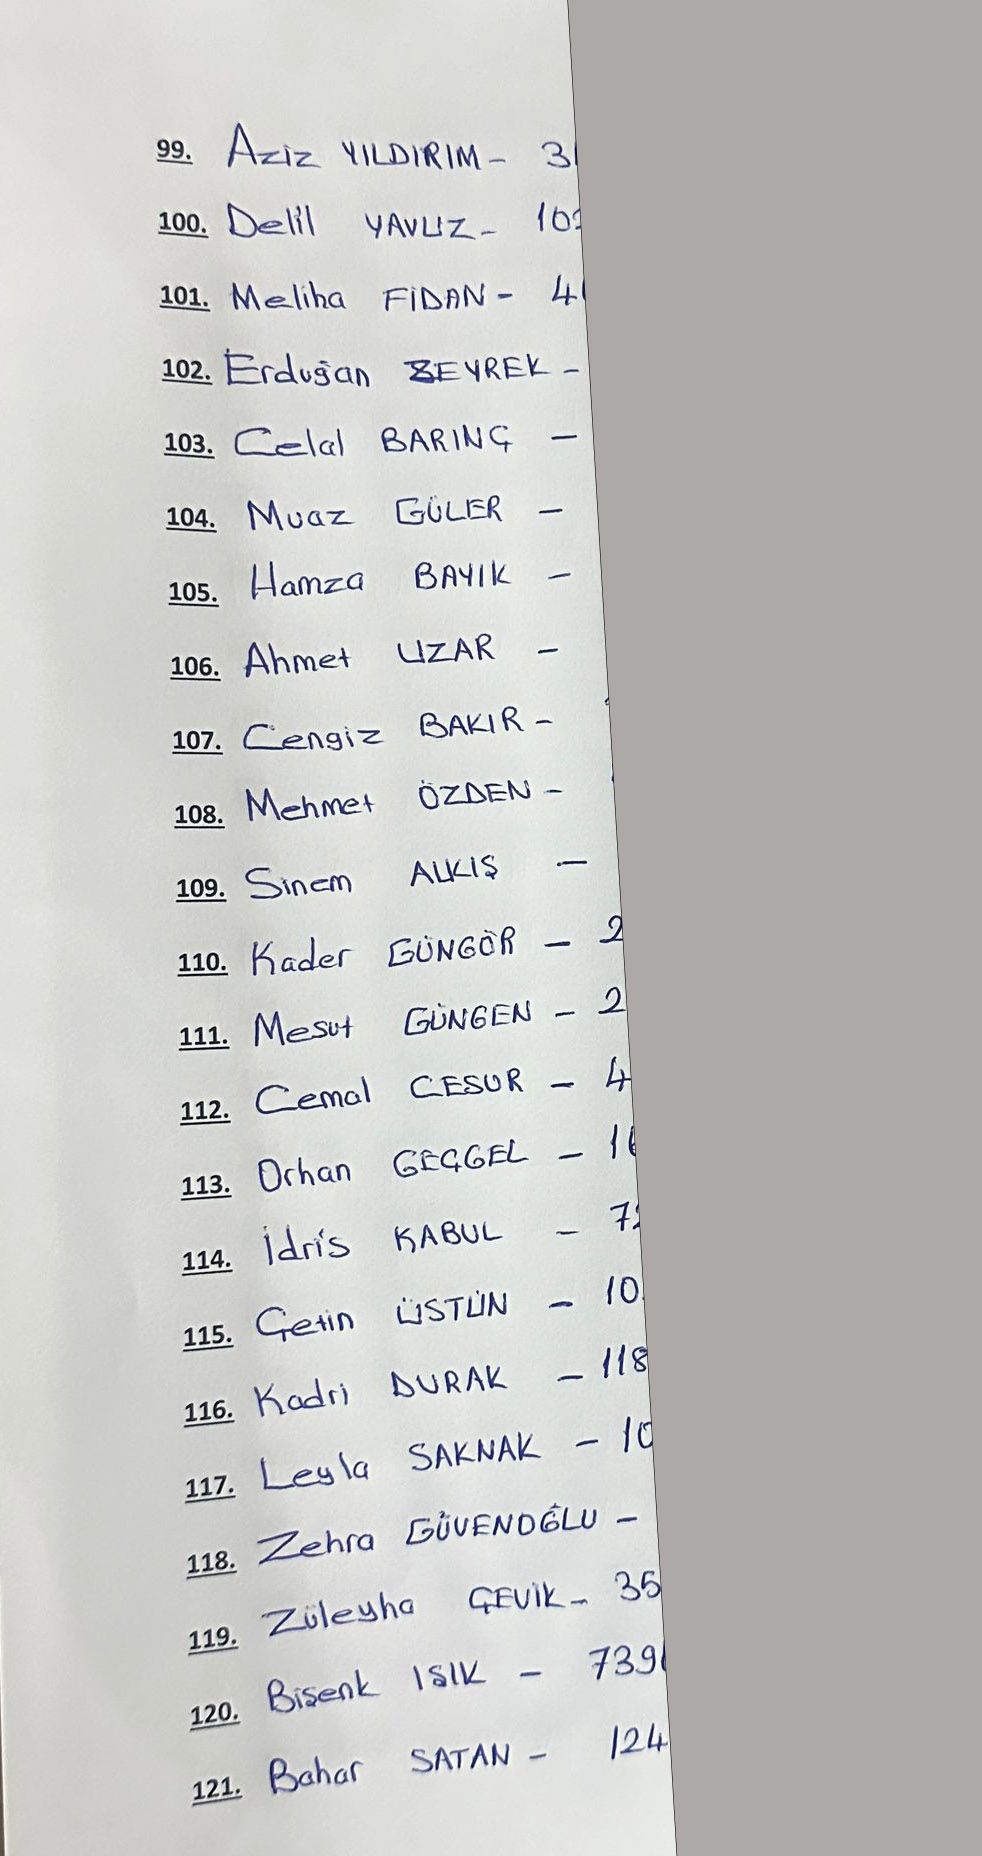 99. Aziz YILDIRIM - 3
100. Delil YAVUZ - 10
101. Meliha FİDAN - 4
102. Erduğan ZEYREK -
103. Celal BARINÇ -
104. Muaz GÜLER -
105. Hamza BAYIK -
106. Ahmet UZAR -
107. Cengiz BAKIR -
108. Mehmet ÖZDEN -
109. Sinem ALKIŞ -
110. Kader GÜNGÖR - 2
111. Mesut GÜNGEN - 2
112. Cemal CESUR - 4
113. Orhan GEÇGEL - 1
114. İdris KABUL - 7
115. Çetin ÜSTÜN - 10
116. Kadri DURAK - 118
117. Leyla SAKNAK - 10
118. Zehra GÜVENOĞLU -
119. Züleyha ÇEVİK - 35
120. Bişenk IŞIK - 739
121. Bahar SATAN - 124